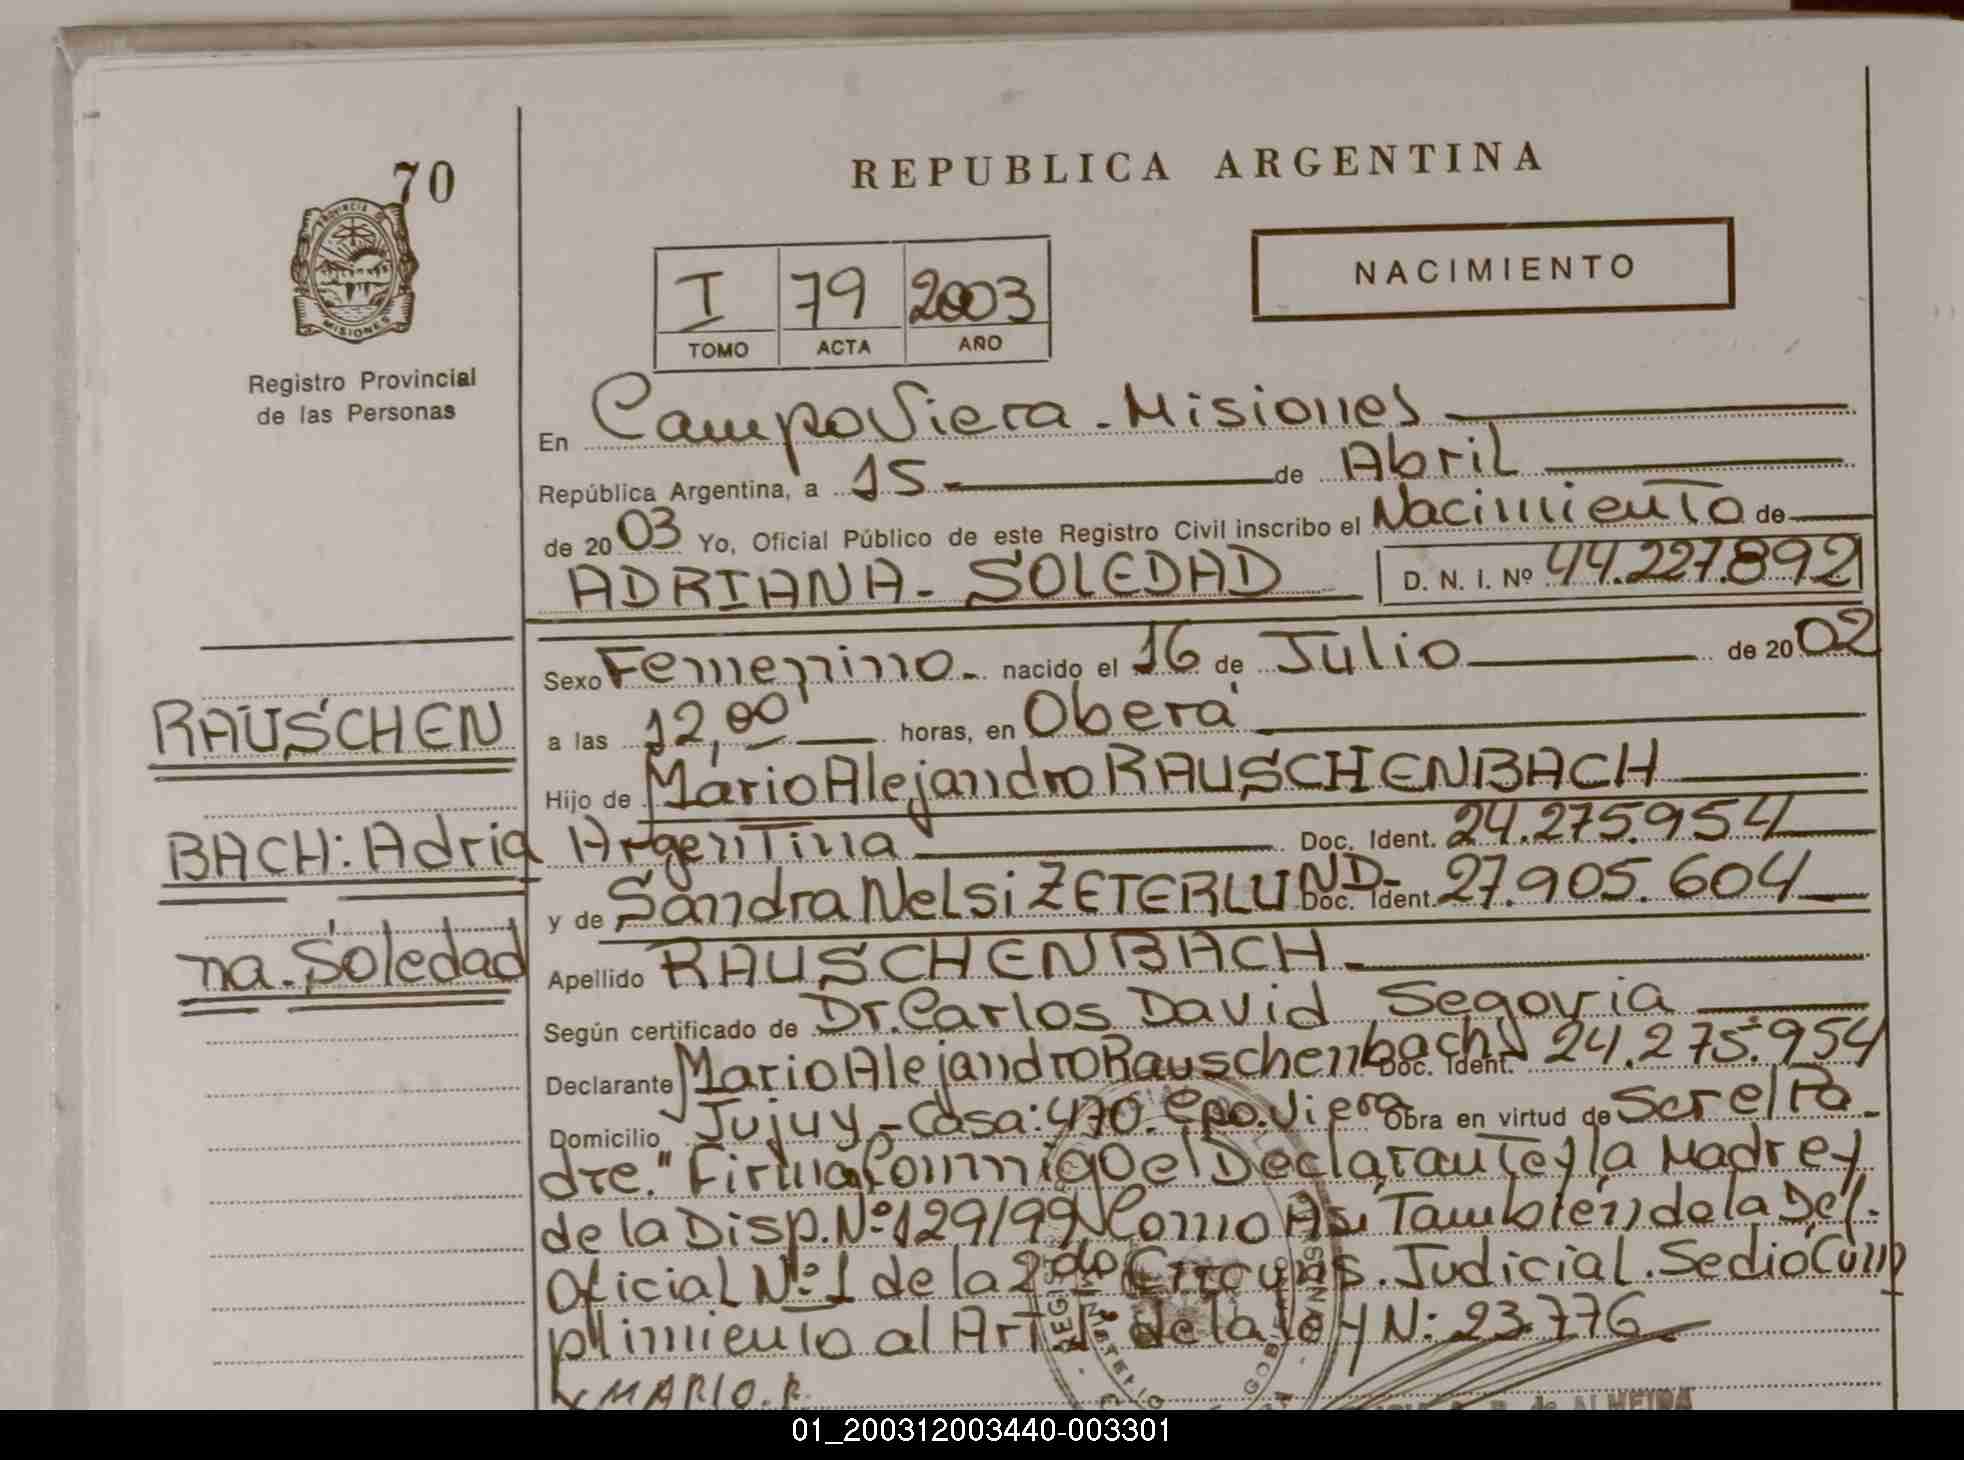 70
PROVINCIA DE
MISIONES
Registro Provincial
de las Personas
REPUBLICA ARGENTINA
I 79 2003
TOMO ACTA AÑO
NACIMIENTO
En Campo Viera - Misiones
República Argentina, a 15 de Abril
de 2003 Yo, Oficial Público de este Registro Civil inscribo el Nacimiento de
ADRIANA - SOLEDAD D. N. I. Nº 44.227.892
Sexo Femenino - nacido el 16 de Julio de 2002
a las 12,00 horas, en Oberá
Hijo de Mario Alejandro RAUSCHENBACH
Argentina Doc. Ident. 24.275.954
y de Sandra Nelsi ZETERLUND - Doc. Ident. 27.905.604
Apellido RAUSCHENBACH -
Según certificado de Dr. Carlos David Segovia
Declarante Mario Alejandro Rauschenbach Doc. Ident. 24.275.954
Domicilio Jujuy - Casa: 470. Cpo. Viera Obra en virtud de Ser el Pa
dre." Firma Conmigo el Declarante y la Madre y
de la Disp. Nº 129/99 Como Así También de la Def.
Oficial Nº: 1 de la 2do Circuns. Judicial. Se dió Cum
plimiento al Art 1 de la ley N: 23.776
x MARIO. R.
RAUSCHEN
BACH: Adria
na. Soledad
de ALMEIDA
01_200312003440-003301